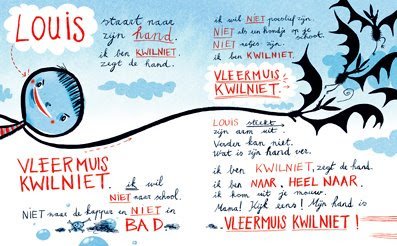 LOUIS
staart naar
zijn hand.
ik ben KWILNIET.
zegt de hand.
VLEERMUIS
KWILNIET.
ik wil
NIET naar school.
NIET naar de kapper en NIET in
BAD.
ik wil NIET positief zijn.
NIET als een hondje op je
schoot.
NIET netjes zijn.
ik ben KWILNIET.
VLEERMUIS
KWILNIET.
LOUIS strekt
zijn arm uit.
Verder kan niet.
Wat is zijn hand ver.
ik ben KWILNIET, zegt de hand.
ik ben NAAR. HEEL NAAR.
ik kom uit je mouw.
Mama! Kijk eens! Mijn hand is
VLEERMUIS KWILNIET!